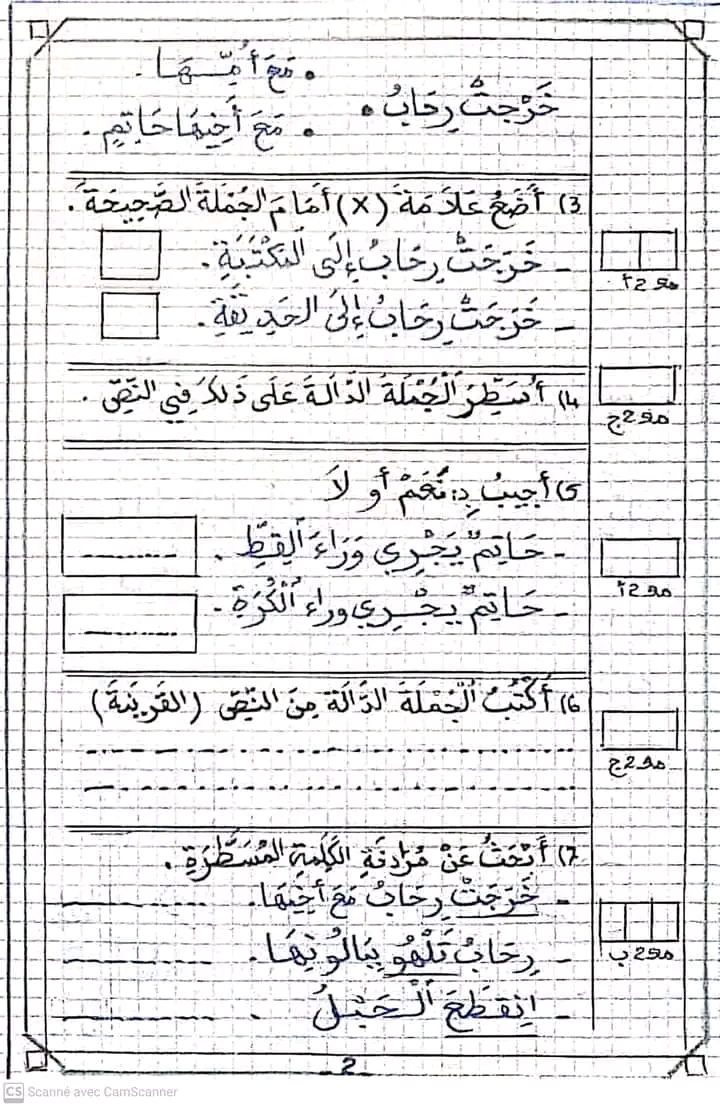 • مَعَ أُمِّهَا.
خَرَجَتْ رِحَابُ •
• مَعَ أَخِيهَا حَاتِمٍ.
3) أَضَعُ عَلَامَةَ (X) أَمَامَ الجُمْلَةِ الصَّحِيحَةِ.
- خَرَجَتْ رِحَابُ إِلَى المَكْتَبَةِ.
مع2أ
- خَرَجَتْ رِحَابُ إِلَى الحَدِيقَةِ.
4) أُسَطِّرُ الْجُمْلَةَ الدَّالَةَ عَلَى ذَلِكَ فِي النَّصِّ.
مع2ج
5) أُجِيبُ بِ: نَعَمْ أَو لَا
- حَاتِمٌ يَجْرِي وَرَاءَ القِطِّ. ........
مع2أ
- حَاتِمٌ يَجْرِي وراء الْكُرَةِ. ........
6) أَكْتُبُ الْجُمْلَةَ الدَّالَةَ مِنَ النَّصِّ (القَرِينَةَ)
مع2ج
7) أَبْحَثُ عَنْ مُرَادِفَةِ الكَلِمَةِ المُسَطَّرَةِ.
- خَرَجَتْ رِحَابُ مَعَ أَخِيهَا. ........
- رِحَابُ تَلْهُو بِبَالُونِهَا. ........
مع2ب
- اِنقَطَعَ الْحَبْلُ. ........
2
CS Scanné avec CamScanner